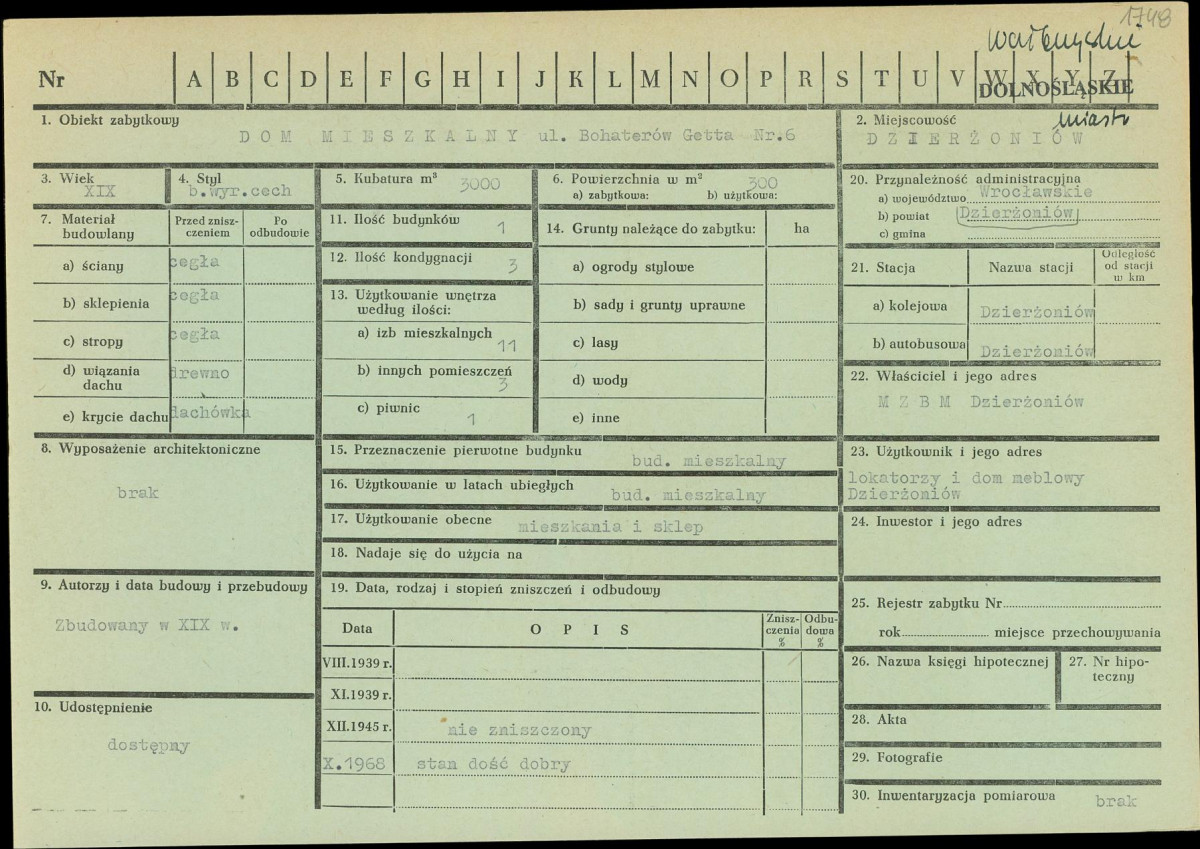 1748
wałbrzyskie
Nr A B C D E F G H I J K L M N O P R S T U V W X Y Z
DOLNOŚLĄSKIE
1. Obiekt zabytkowy
DOM MIESZKALNY ul. Bohaterów Getta Nr.6
2. Miejscowość miasto
DZIERŻONIÓW
3. Wiek
XIX
4. Styl
b.wyr.cech
5. Kubatura m³ 3000
6. Powierzchnia w m² 300
a) zabytkowa: b) użytkowa:
7. Materiał budowlany
Przed znisz-
czeniem
Po
odbudowie
a) ściany cegła
b) sklepienia cegła
c) stropy cegła
d) wiązania
dachu drewno
e) krycie dachu dachówka
8. Wyposażenie architektoniczne
brak
9. Autorzy i data budowy i przebudowy
Zbudowany w XIX w.
10. Udostępnienie
dostępny
11. Ilość budynków 1
12. Ilość kondygnacji 3
13. Użytkowanie wnętrza
według ilości:
a) izb mieszkalnych 11
b) innych pomieszczeń 3
c) piwnic 1
14. Grunty należące do zabytku: ha
a) ogrody stylowe
b) sady i grunty uprawne
c) lasy
d) wody
e) inne
15. Przeznaczenie pierwotne budynku bud. mieszkalny
16. Użytkowanie w latach ubiegłych bud. mieszkalny
17. Użytkowanie obecne mieszkania i sklep
18. Nadaje się do użycia na
19. Data, rodzaj i stopień zniszczeń i odbudowy
Data OPIS
Znisz-
czenia
%
Odbu-
dowa
%
VIII.1939 r.
XI.1939 r.
XII.1945 r. nie zniszczony
X.1968 stan dość dobry
20. Przynależność administracyjna
a) województwo Wrocławskie
b) powiat Dzierżoniów
c) gmina
21. Stacja Nazwa stacji
Odległość
od stacji
w km
a) kolejowa Dzierżoniów
b) autobusowa Dzierżoniów
22. Właściciel i jego adres
M Z B M Dzierżoniów
23. Użytkownik i jego adres
lokatorzy i dom meblowy
Dzierżoniów
24. Inwestor i jego adres
25. Rejestr zabytku Nr
rok miejsce przechowywania
26. Nazwa księgi hipotecznej
27. Nr hipo-
teczny
28. Akta
29. Fotografie
30. Inwentaryzacja pomiarowa brak